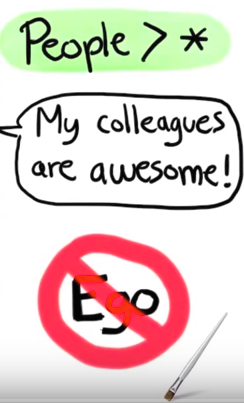 People > *
My colleagues
are awesome!
Ego